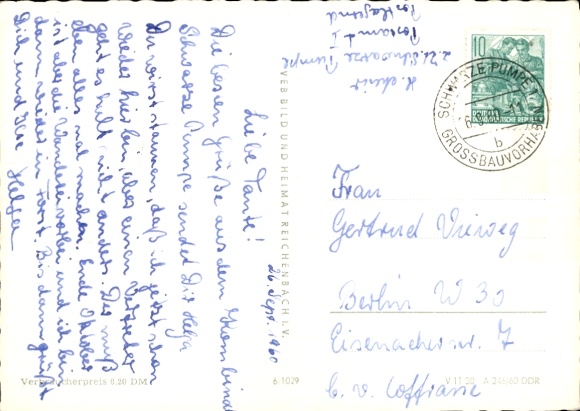 26. Sept. 1960
Liebe Tante!
Die besten Grüße aus dem Kombinat
Schwarze Pumpe sendet Dir Helga
Du wirst staunen, daß ich jetzt schon
wieder hier bin, aber einen Vertreter
geht es halt nicht anders. Der muß
eben alles mal machen. Ende Oktober
ist aber die Wanderei vorbei und ich bin
dann wieder in Forst. Bis dann grüßt
Dich und Ilse Helga
Verbraucherpreis 0,20 DM
6 1029
V 11 28 A 246/60 DDR
VEB BILD UND HEIMAT REICHENBACH I. V.
z. Zt. Schwarze Pumpe
Postamt I
Postlagernd
10
DEUTSCHE
DEMOKRATISCHE REPUBLIK
SCHWARZE PUMPE
GROSSBAUVORHABEN
b
Frau
Gertrud Vieweg
Berlin W 30
Eisenacherstr. 7
b. v. Loffrasse